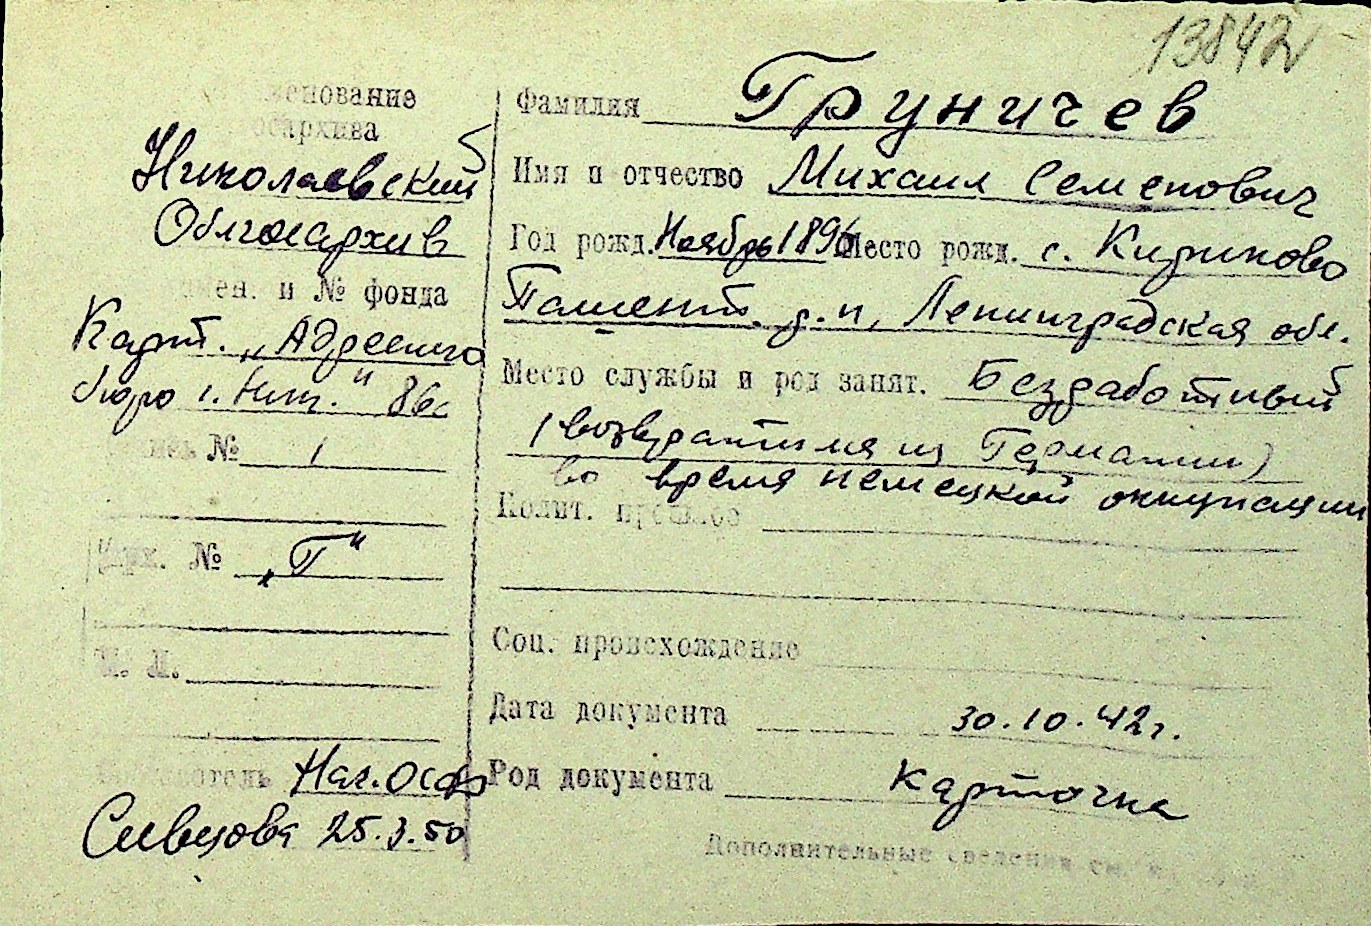 13842
Наименование
госархива
Николаевский
Облгосархив
Наимен. и № фонда
Карт. „Адресного
бюро г. Ник." 86с
Опись № 1
Арх. № „Г"
Л. Л.
Составитель Нач. ОСФ
Сивцова 25.3.50
Фамилия Груничев
Имя и отчество Михаил Семенович
Год рожд. Ноябрь 1896 Место рожд. с. Кириково
р-н, Ленинградская обл.
Место службы и род занят. Безработный
(возвратился из Германии)
во время немецкой оккупации
Полит. прошлое
Соц. происхождение
Дата документа 30.10.42г.
Род документа карточка
Дополнительные сведения см.